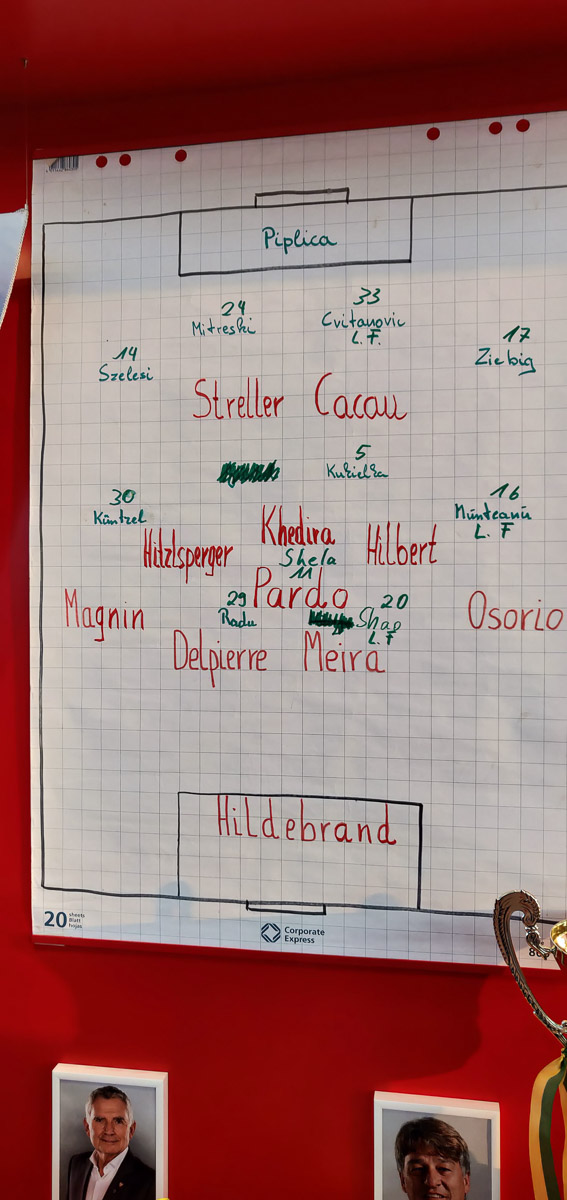 Piplica
24
Mitreski
33
Cvitanovic
L. F.
17
Ziebig
14
Szelesi
Streller Cacau
5
Kukielka
30
Küntzel
16
Munteanu
L. F
Khedira
Hitzlsperger
Hilbert
Shela
11
Pardo
Magnin
29
Radu
20
Shao
L. F
Osorio
Delpierre Meira
Hildebrand
20 sheets
Blatt
hojas
Corporate
Express